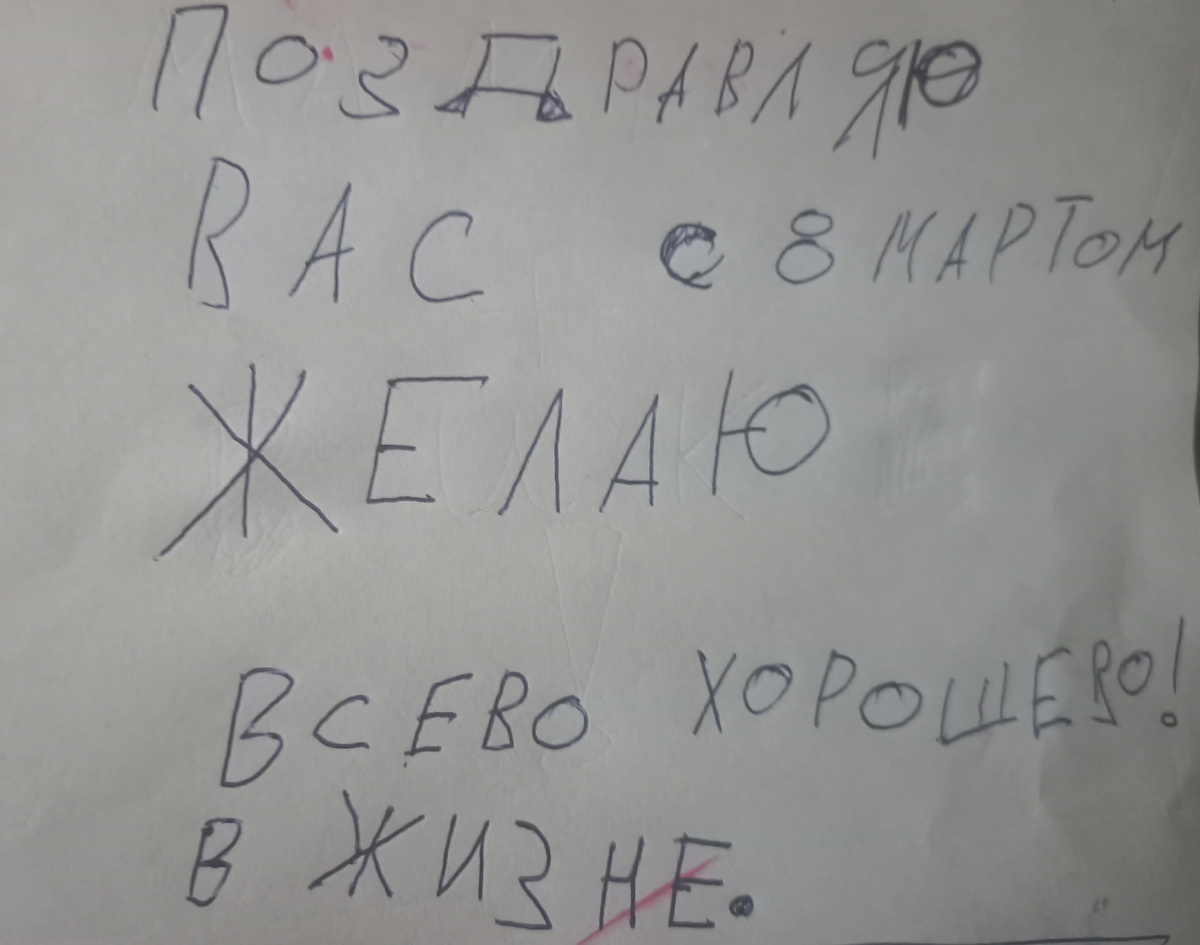 ПОЗДРАВЛЯЮ
ВАС С 8 МАРТОМ
ЖЕЛАЮ
ВСЕВО ХОРОШЕВО!
В ЖИЗНЕ.